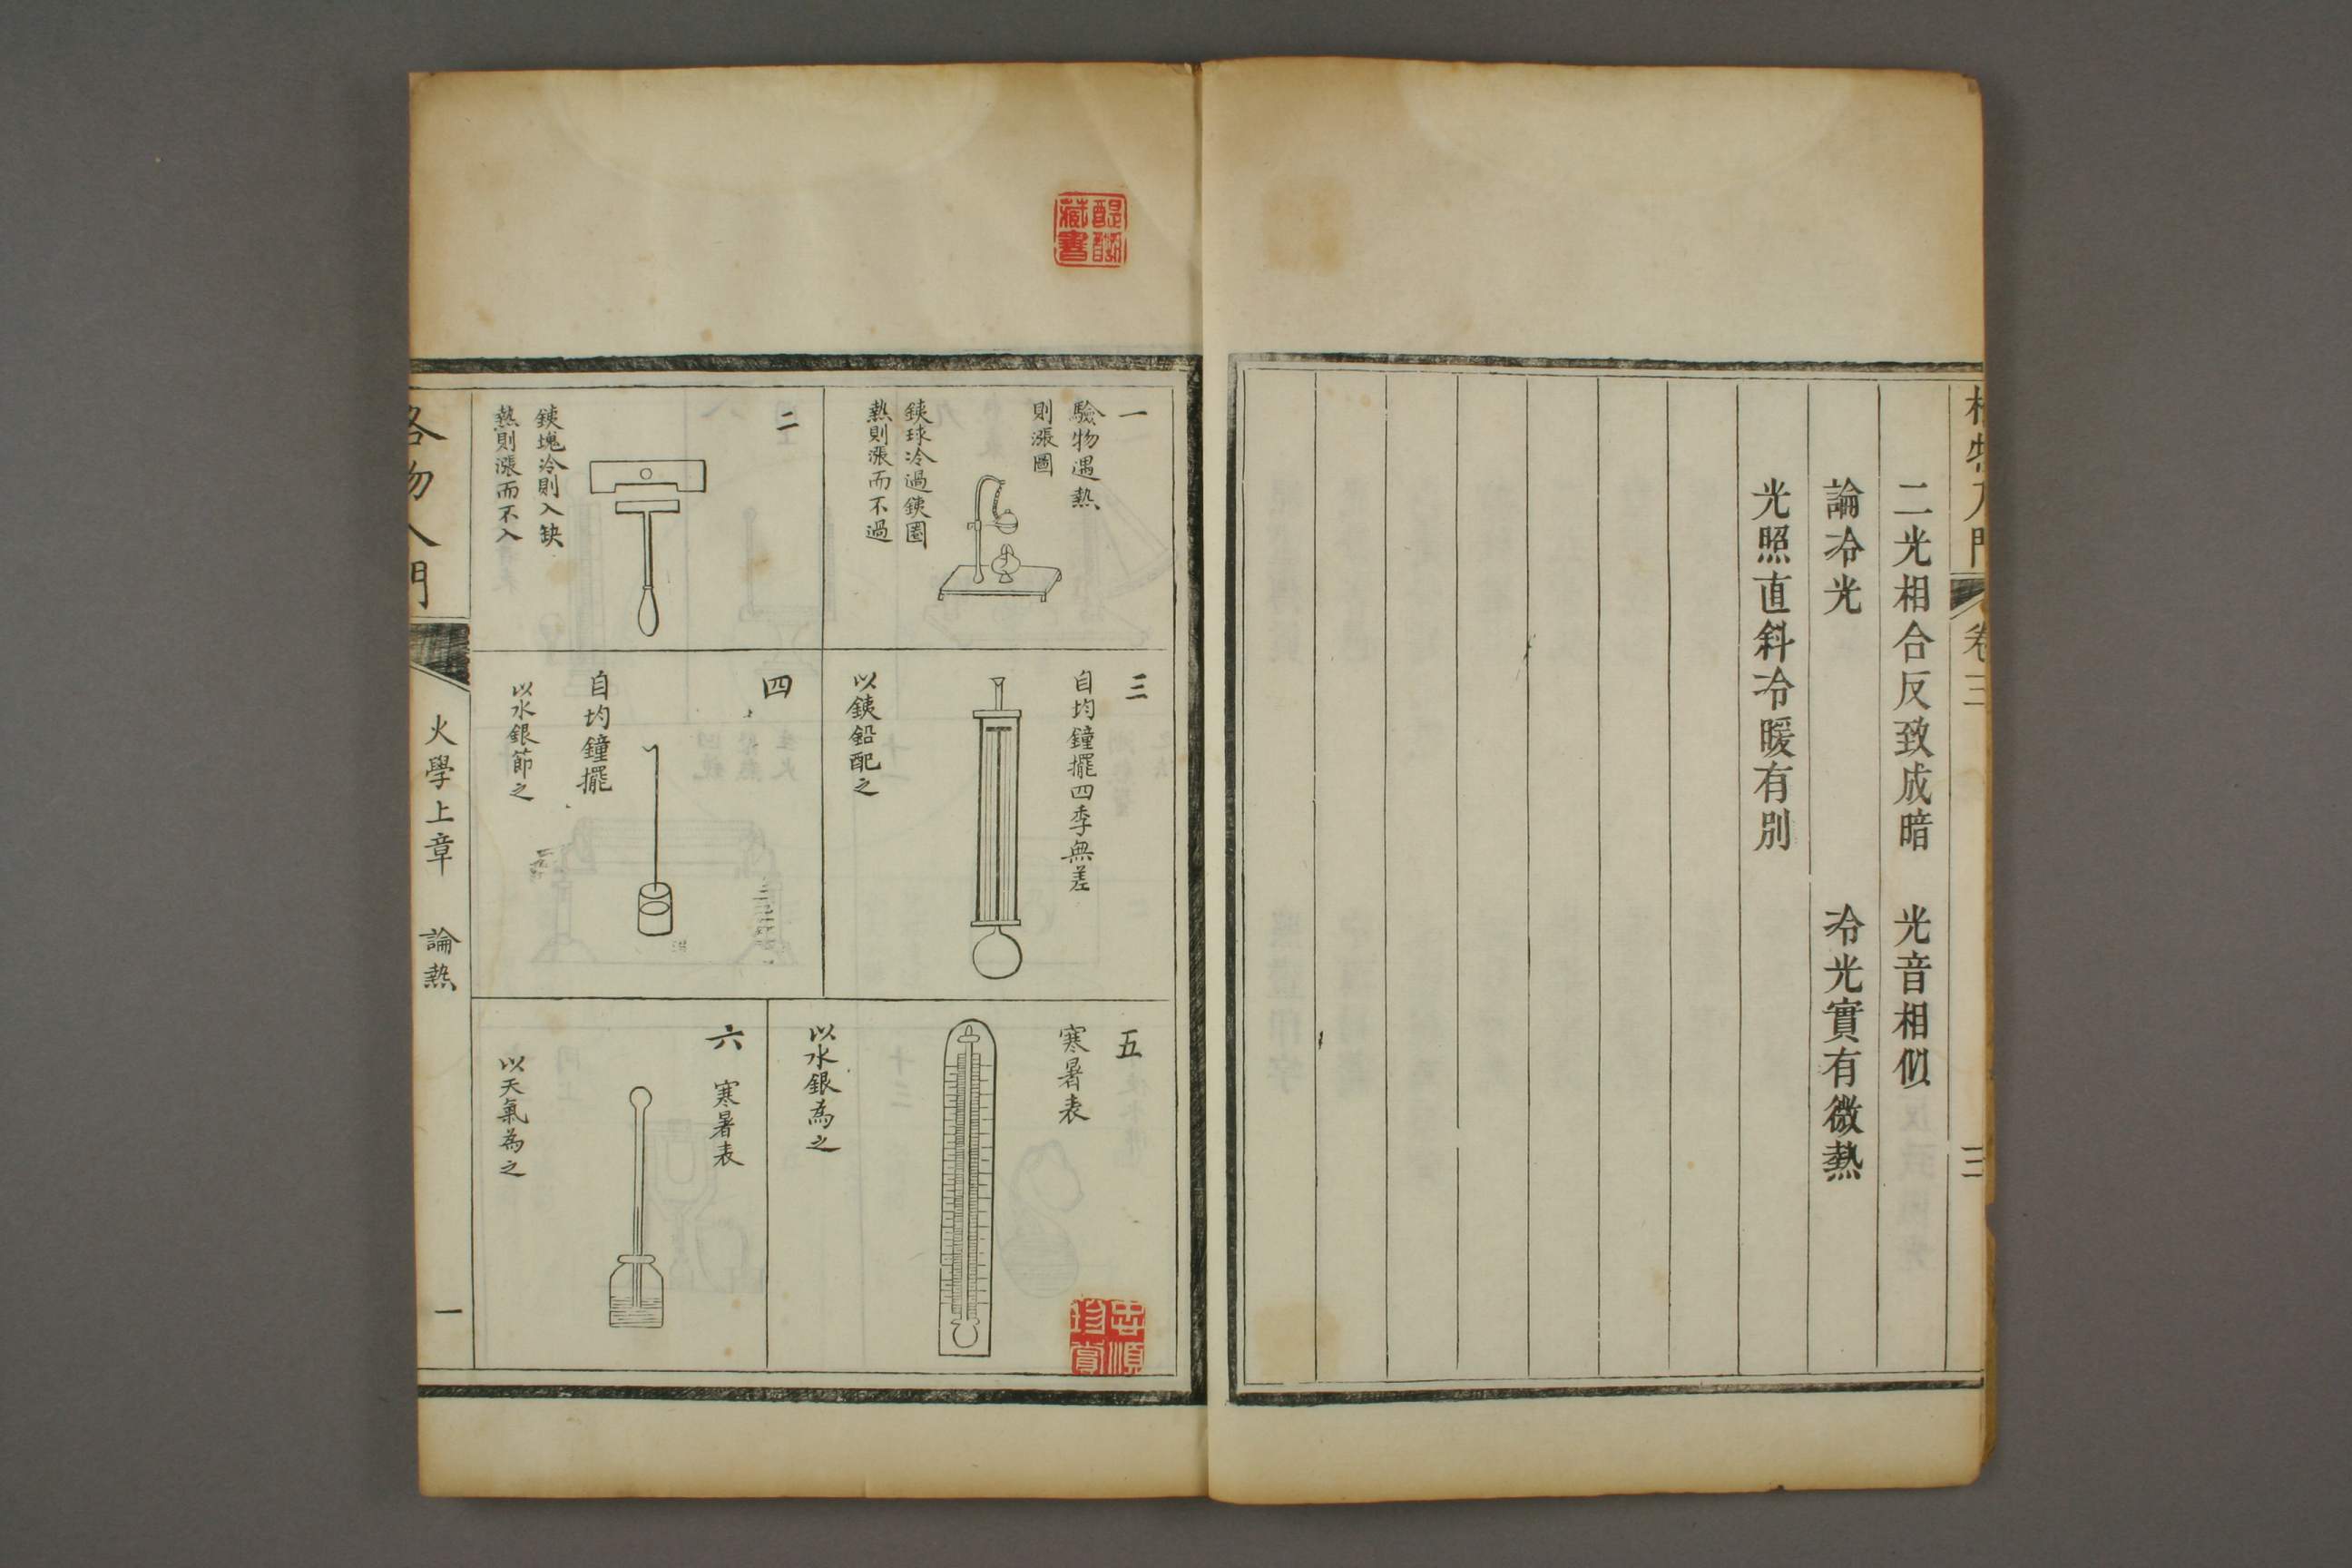 格物入門
卷三
三
二光相合反致成暗　光音相似
論冷光　冷光實有微熱
光照直斜冷暖有別
一
驗物遇熱
則漲圖
鐵球冷過鐵圈
熱則漲而不過
二
鐵塊冷則入缺
熱則漲而不入
三
自均鐘擺四季無差
以鐵鉛配之
四
自均鐘擺
以水銀節之
五
寒暑表
以水銀為之
六
寒暑表
以天氣為之
格物入門
火學上章　論熱
一
藏書
忠順
珍賞